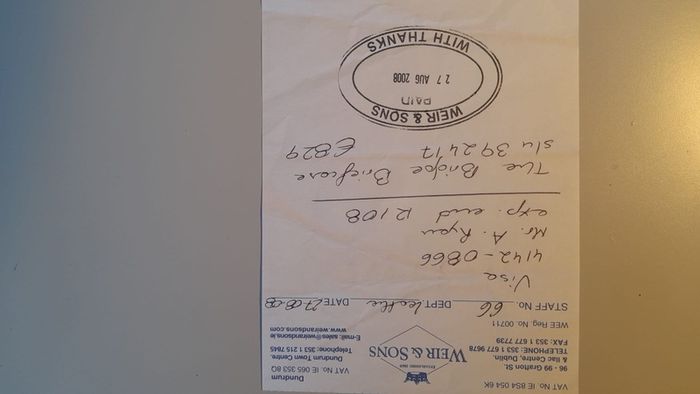 VAT No. IE 8S4 054 6K
96 - 99 Grafton St.
& Ilac Centre, Dublin.
TELEPHONE: 353 1 677 9678
FAX 353 1 677 7739
WEE Reg No. 00711
ESTABLISHED 1869
WEIR & SONS
Dundrum
VAT No. IE 065 353 8Q
Dundrum Town Centre.
Telephone: 353 1 215 7845
E-mail: sales@weirandsons.ie
www.weirandsons.com
STAFF No. 66 DEPT. Leather DATE 27-08-08
Visa
4142-0866
Mr. A. Ryan
exp. end 12/08
The Bridge Briefcase
s/u 392417 €829
WEIR & SONS
PAID
27 AUG 2008
WITH THANKS